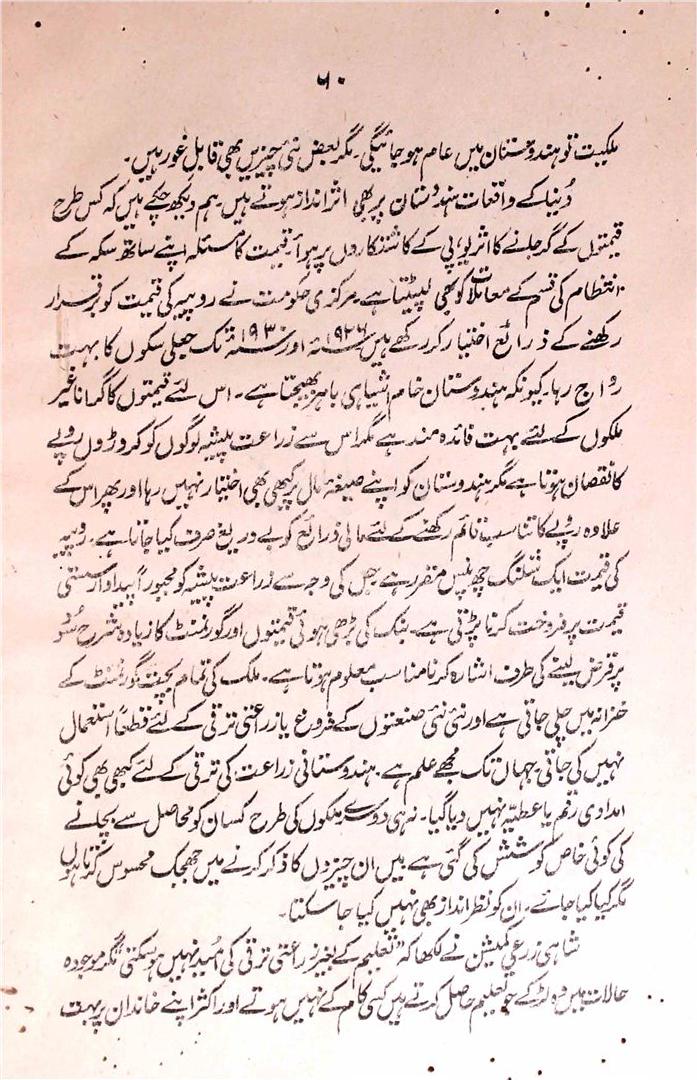 ۶۰
ملکیت تو ہندوستان میں عام ہو جائیگی۔ مگر بعض نئی چیزیں بھی قابل غور ہیں۔
دُنیا کے واقعات ہندوستان پر بھی اثر انداز ہوتے ہیں۔ ہم دیکھ چکے ہیں کہ کس طرح
قیمتوں کے گر جانے کا اثر یو، پی کے کاشتکاروں پر ہوا۔ قیمت کا مسئلہ اپنے ساتھ سکہ کے
انتظام کی قسم کے معاملات کو بھی لپیٹتا ہے۔ مرکزی حکومت نے روپیہ کی قیمت کو برقرار
رکھنے کے ذرائع اختیار کر رکھے ہیں ۱۹۲۶ء اور ۱۹۳۰ء تک جعلی سکوں کا بہت
رواج رہا۔ کیونکہ ہندوستان خام اشیا ہی باہر بھیجتا ہے۔ اس لئے قیمتوں کا گرانا غیر
ملکوں کے لئے بہت فائدہ مند ہے مگر اس سے زراعت پیشہ لوگوں کو کروڑوں روپے
کا نقصان ہوتا ہے مگر ہندوستان کو اپنے صیغۂ مال پر کبھی بھی اختیار نہیں رہا اور پھر اس کے
علاوہ روپے کا تناسب قائم رکھنے کے لئے مالی ذرائع کو بے دریغ صرف کیا جاتا ہے۔ روپیہ
کی قیمت ایک شلنگ چھ پنس مقرر ہے جس کی وجہ سے زراعت پیشہ کو مجبوراً پیداوار سستی
قیمت پر فروخت کرنا پڑتی ہے۔ بنک کی بڑھی ہوئی قیمتوں اور گورنمنٹ کا زیادہ شرح سُود
پر قرض لینے کی طرف اشارہ کرنا مناسب معلوم ہوتا ہے۔ ملک کی تمام بچت گورنمنٹ کے
خزانہ میں چلی جاتی ہے اور نئی نئی صنعتوں کے فروغ یا زراعتی ترقی کے لئے قطعاً استعمال
نہیں کی جاتی۔ جہان تک مجھے علم ہے۔ ہندوستانی زراعت کی ترقی کے لئے کبھی بھی کوئی
امدادی رقم یا عطیّہ نہیں دیا گیا۔ نہ ہی دوسرے ملکوں کی طرح کسان کو محاصل سے بچانے
کی کوئی خاص کوشش کی گئی ہے میں ان چیزوں کا ذکر کرنے میں جھجک محسوس کرتا ہوں
مگر کیا کیا جائے۔ ان کو نظر انداز بھی نہیں کیا جا سکتا۔
شاہی زرعی کمیشن نے لکھا کہ "تعلیم کے بغیر زراعتی ترقی کی اُمید نہیں ہو سکتی" مگر موجودہ
حالات میں جو لڑکے تعلیم حاصل کرتے ہیں کسی کام کے نہیں ہوتے اور اکثر اپنے خاندان پر بہت